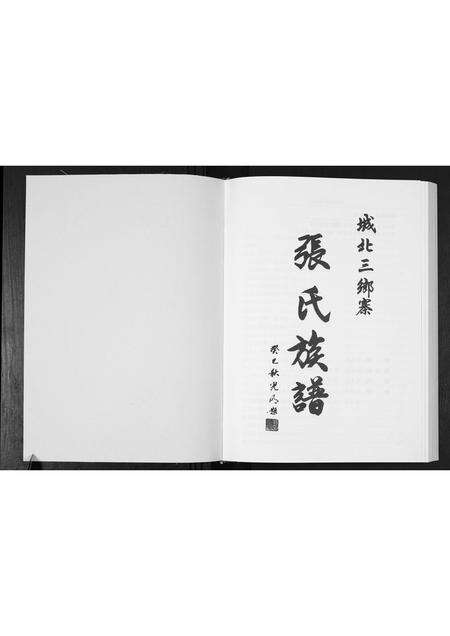 城北三鄉寨
張氏族譜
癸巳秋光明題